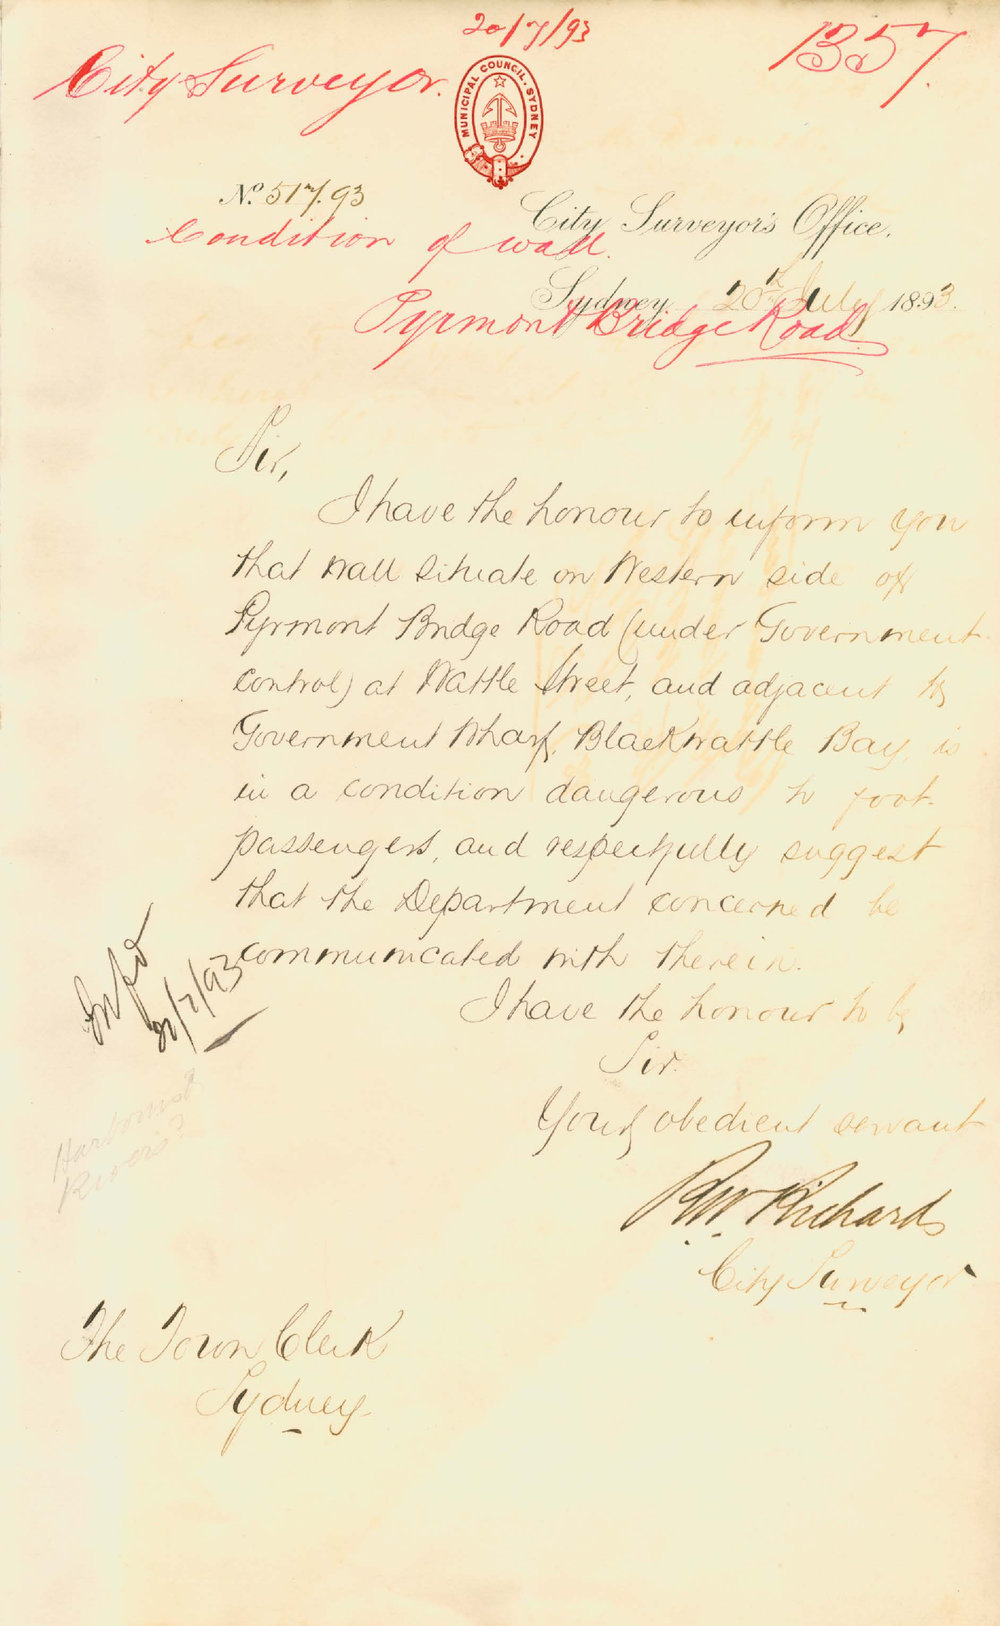 20/7/93
1357.
City Surveyor.
MUNICIPAL COUNCIL. SYDNEY
No. 517.93
City Surveyor's Office.
Condition of wall.
Sydney, 20th July 1893.
Pyrmont Bridge Road
Sir,
I have the honour to inform you
that wall situate on Western side of
Pyrmont Bridge Road (under Government
control) at Wattle Street, and adjacent to
Government Wharf, Blackwattle Bay, is
in a condition dangerous to foot-
passengers, and respectfully suggest
that the Department concerned be
communicated with therein.
I have the honour to be
Sir.
Your obedient servant
RW Richards
City Surveyor
/7/93
Rivers?
The Town Clerk
Sydney